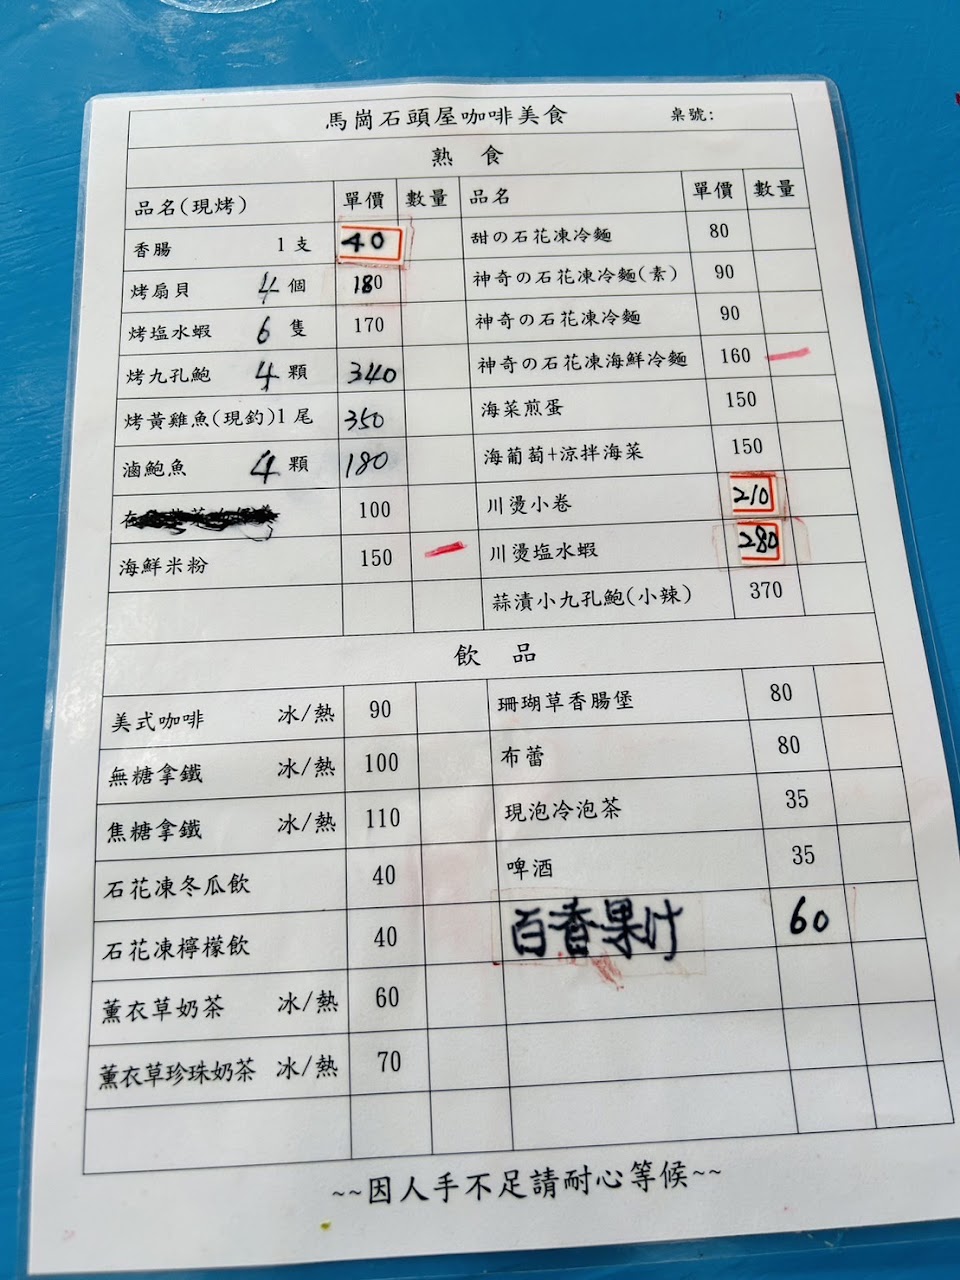 馬崗石頭屋咖啡美食 桌號:
熟 食
品名(現烤) 單價 數量 品名 單價 數量
香腸 1支 40 甜の石花凍冷麵 80
烤扇貝 4 個 180 神奇の石花凍冷麵(素) 90
烤塩水蝦 6 隻 170 神奇の石花凍冷麵 90
烤九孔鮑 4 顆 340 神奇の石花凍海鮮冷麵 160
烤黃雞魚(現釣)1尾 350 海菜煎蛋 150
滷鮑魚 4 顆 180 海葡萄+涼拌海菜 150
100 川燙小卷 210
海鮮米粉 150 川燙塩水蝦 280
蒜漬小九孔鮑(小辣) 370
飲 品
美式咖啡 冰/熱 90 珊瑚草香腸堡 80
無糖拿鐵 冰/熱 100 布蕾 80
焦糖拿鐵 冰/熱 110 現泡冷泡茶 35
石花凍冬瓜飲 40 啤酒 35
石花凍檸檬飲 40 百香果汁 60
薰衣草奶茶 冰/熱 60
薰衣草珍珠奶茶 冰/熱 70
~~因人手不足請耐心等候~~